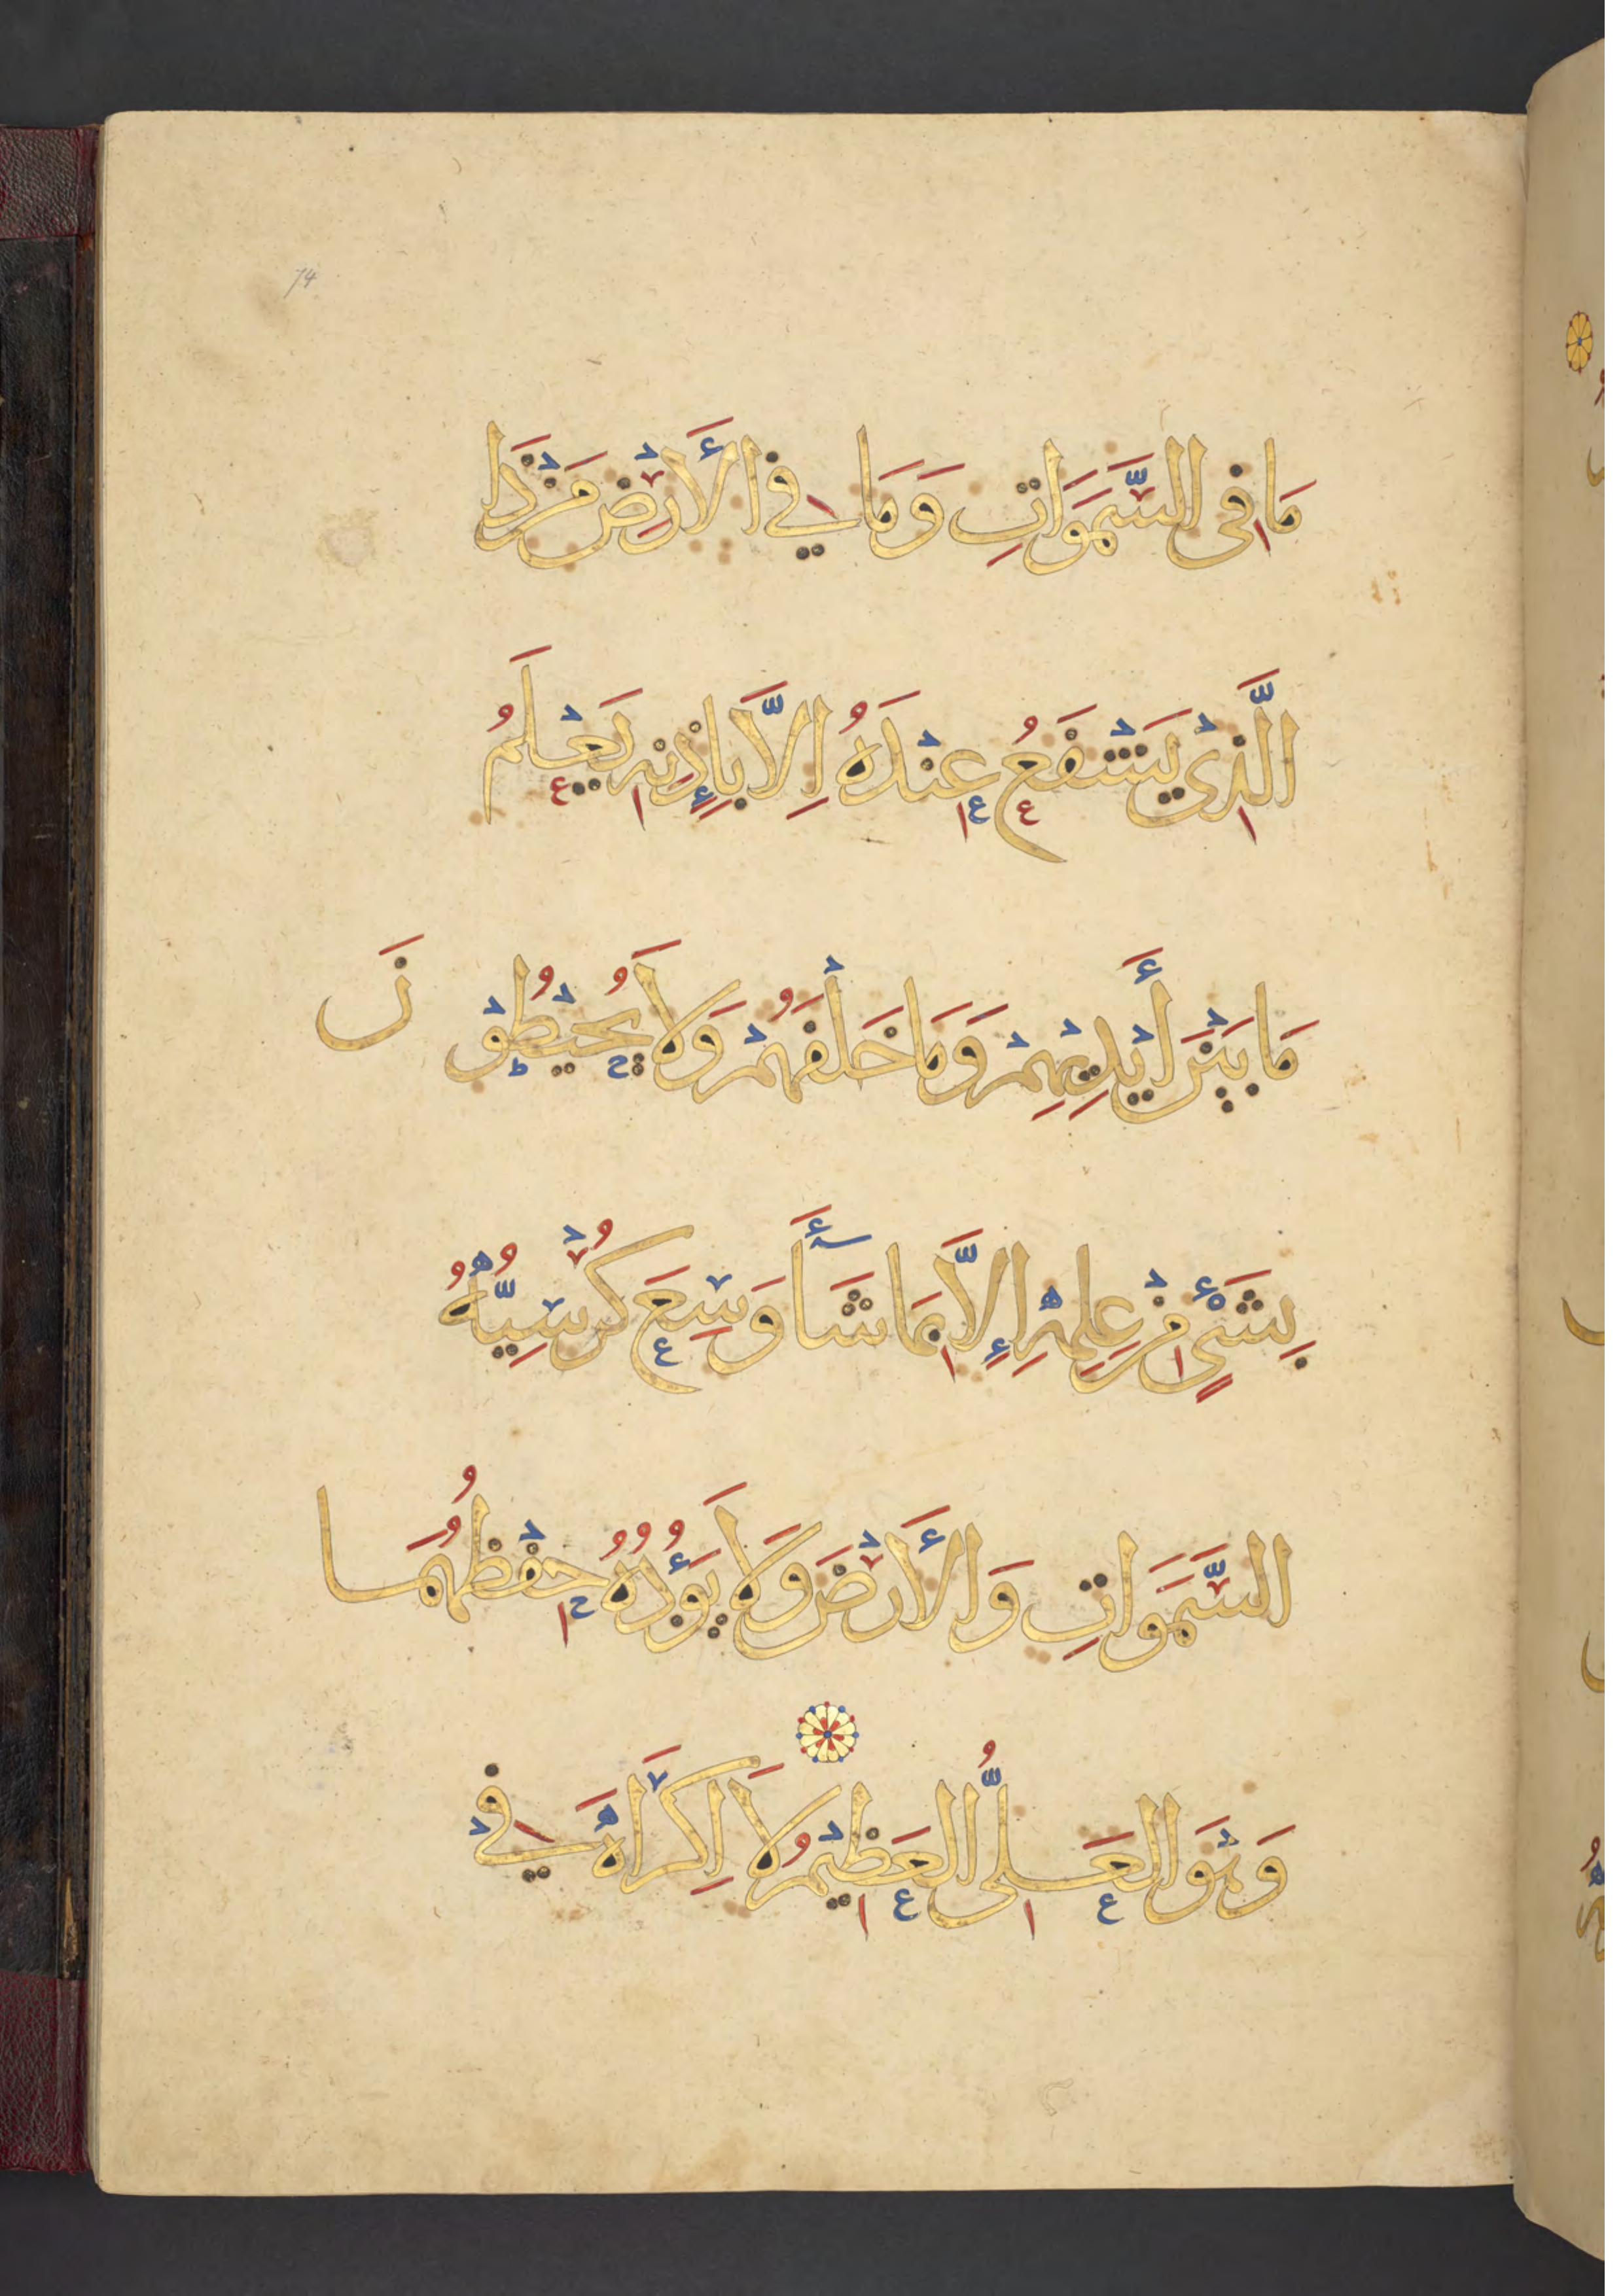 74
مَا فِى السَّمَوَاتِ وَمَا فِي الْأَرْضِ مَنْ ذَا
الَّذِىْ يَشْفَعُ عِنْدَهُ اِلَّا بِإِذْنِهِ يَعْلَمُ
مَا بَيْنَ أَيْدِيْهِمْ وَمَا خَلْفَهُمْ وَلَا يُحِيْطُوْنَ
بِشَىْءٍ مِنْ عِلْمِهِ إِلَّا بِمَا شَآءَ وَسِعَ كُرْسِيُّهُ
السَّمَوَاتِ وَالْأَرْضَ وَلَا يَؤُدُهُ حِفْظُهُمَا
وَهْوَ الْعَلِىُّ الْعَظِيْمُ لَا اِكْرَاهَ فِيْ